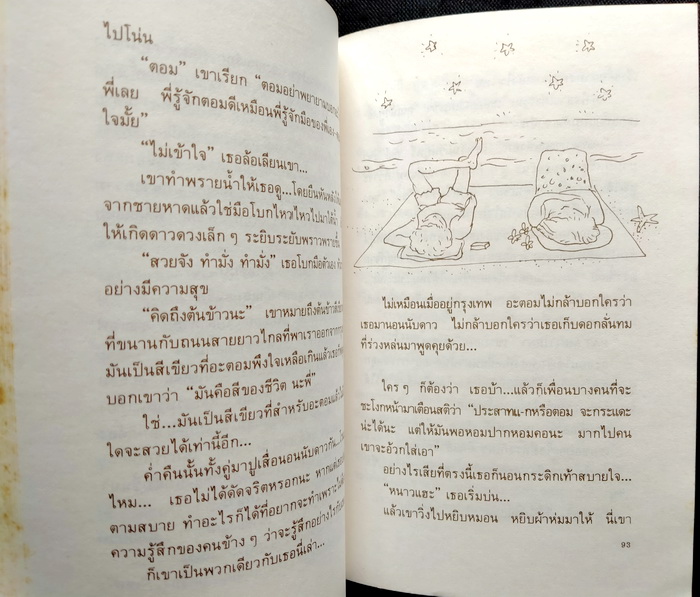 ไปโน่น
“ตอม” เขาเรียก “ตอมอย่าพยายาม
พี่เลย พี่รู้จักตอมดีเหมือนพี่รู้จักมือของพี่เอง
ใจมั้ย”
“ไม่เข้าใจ” เธอล้อเลียนเขา...
เขาทำพรายน้ำให้เธอดู...โดยยืนหันหลัง
จากชายหาดแล้วใช้มือโบกไหวไหวไปมา
ให้เกิดดาวดวงเล็ก ๆ ระยิบระยับพราวพราย
“สวยจัง ทำมั่ง ทำมั่ง” เธอโบกมือตัวเอง
อย่างมีความสุข
“คิดถึงต้นข้าวนะ” เขาหมายถึงต้นข้าวสี
ที่ขนานกับถนนสายยาวไกลที่พาเราออก
มันเป็นสีเขียวที่อะตอมพึงใจเหลือเกินแล้ว
บอกเขาว่า “มันคือสีของชีวิต นะพี่”
ใช่...มันเป็นสีเขียวที่สำหรับอะตอมแล้ว
ใดจะสวยได้เท่านี้อีก...
ค่ำคืนนั้นทั้งคู่มาปูเสื่อนอนนับดาวกัน...
ไหม... เธอไม่ได้ดัดจริตหรอกนะ หาก
ตามสบาย ทำอะไรก็ได้ที่อยากจะทำเพราะ
ความรู้สึกของคนข้าง ๆ ว่าจะรู้สึกอย่างไร
ก็เขาเป็นพวกเดียวกับเธอนี่เล่า...
ไม่เหมือนเมื่ออยู่กรุงเทพ อะตอมไม่กล้าบอกใครว่า
เธอมานอนนับดาว ไม่กล้าบอกใครว่าเธอเก็บดอกลั่นทม
ที่ร่วงหล่นมาพูดคุยด้วย...
ใคร ๆ ก็ต้องว่า เธอบ้า...แล้วก็เพื่อนบางคนที่จะ
ชะโงกหน้ามาเตือนสติว่า “ประสาทแ-กหรือตอม จะกระแดะ
น่ะได้นะ แต่ให้มันพอหอมปากหอมคอนะ มากไปคน
เขาจะอ้วกใส่เอา”
อย่างไรเสียที่ตรงนี้เธอก็นอนกระดิกเท้าสบายใจ...
“หนาวแฮะ” เธอเริ่มบ่น...
แล้วเขาวิ่งไปหยิบหมอน หยิบผ้าห่มมาให้ นี่เขา
93